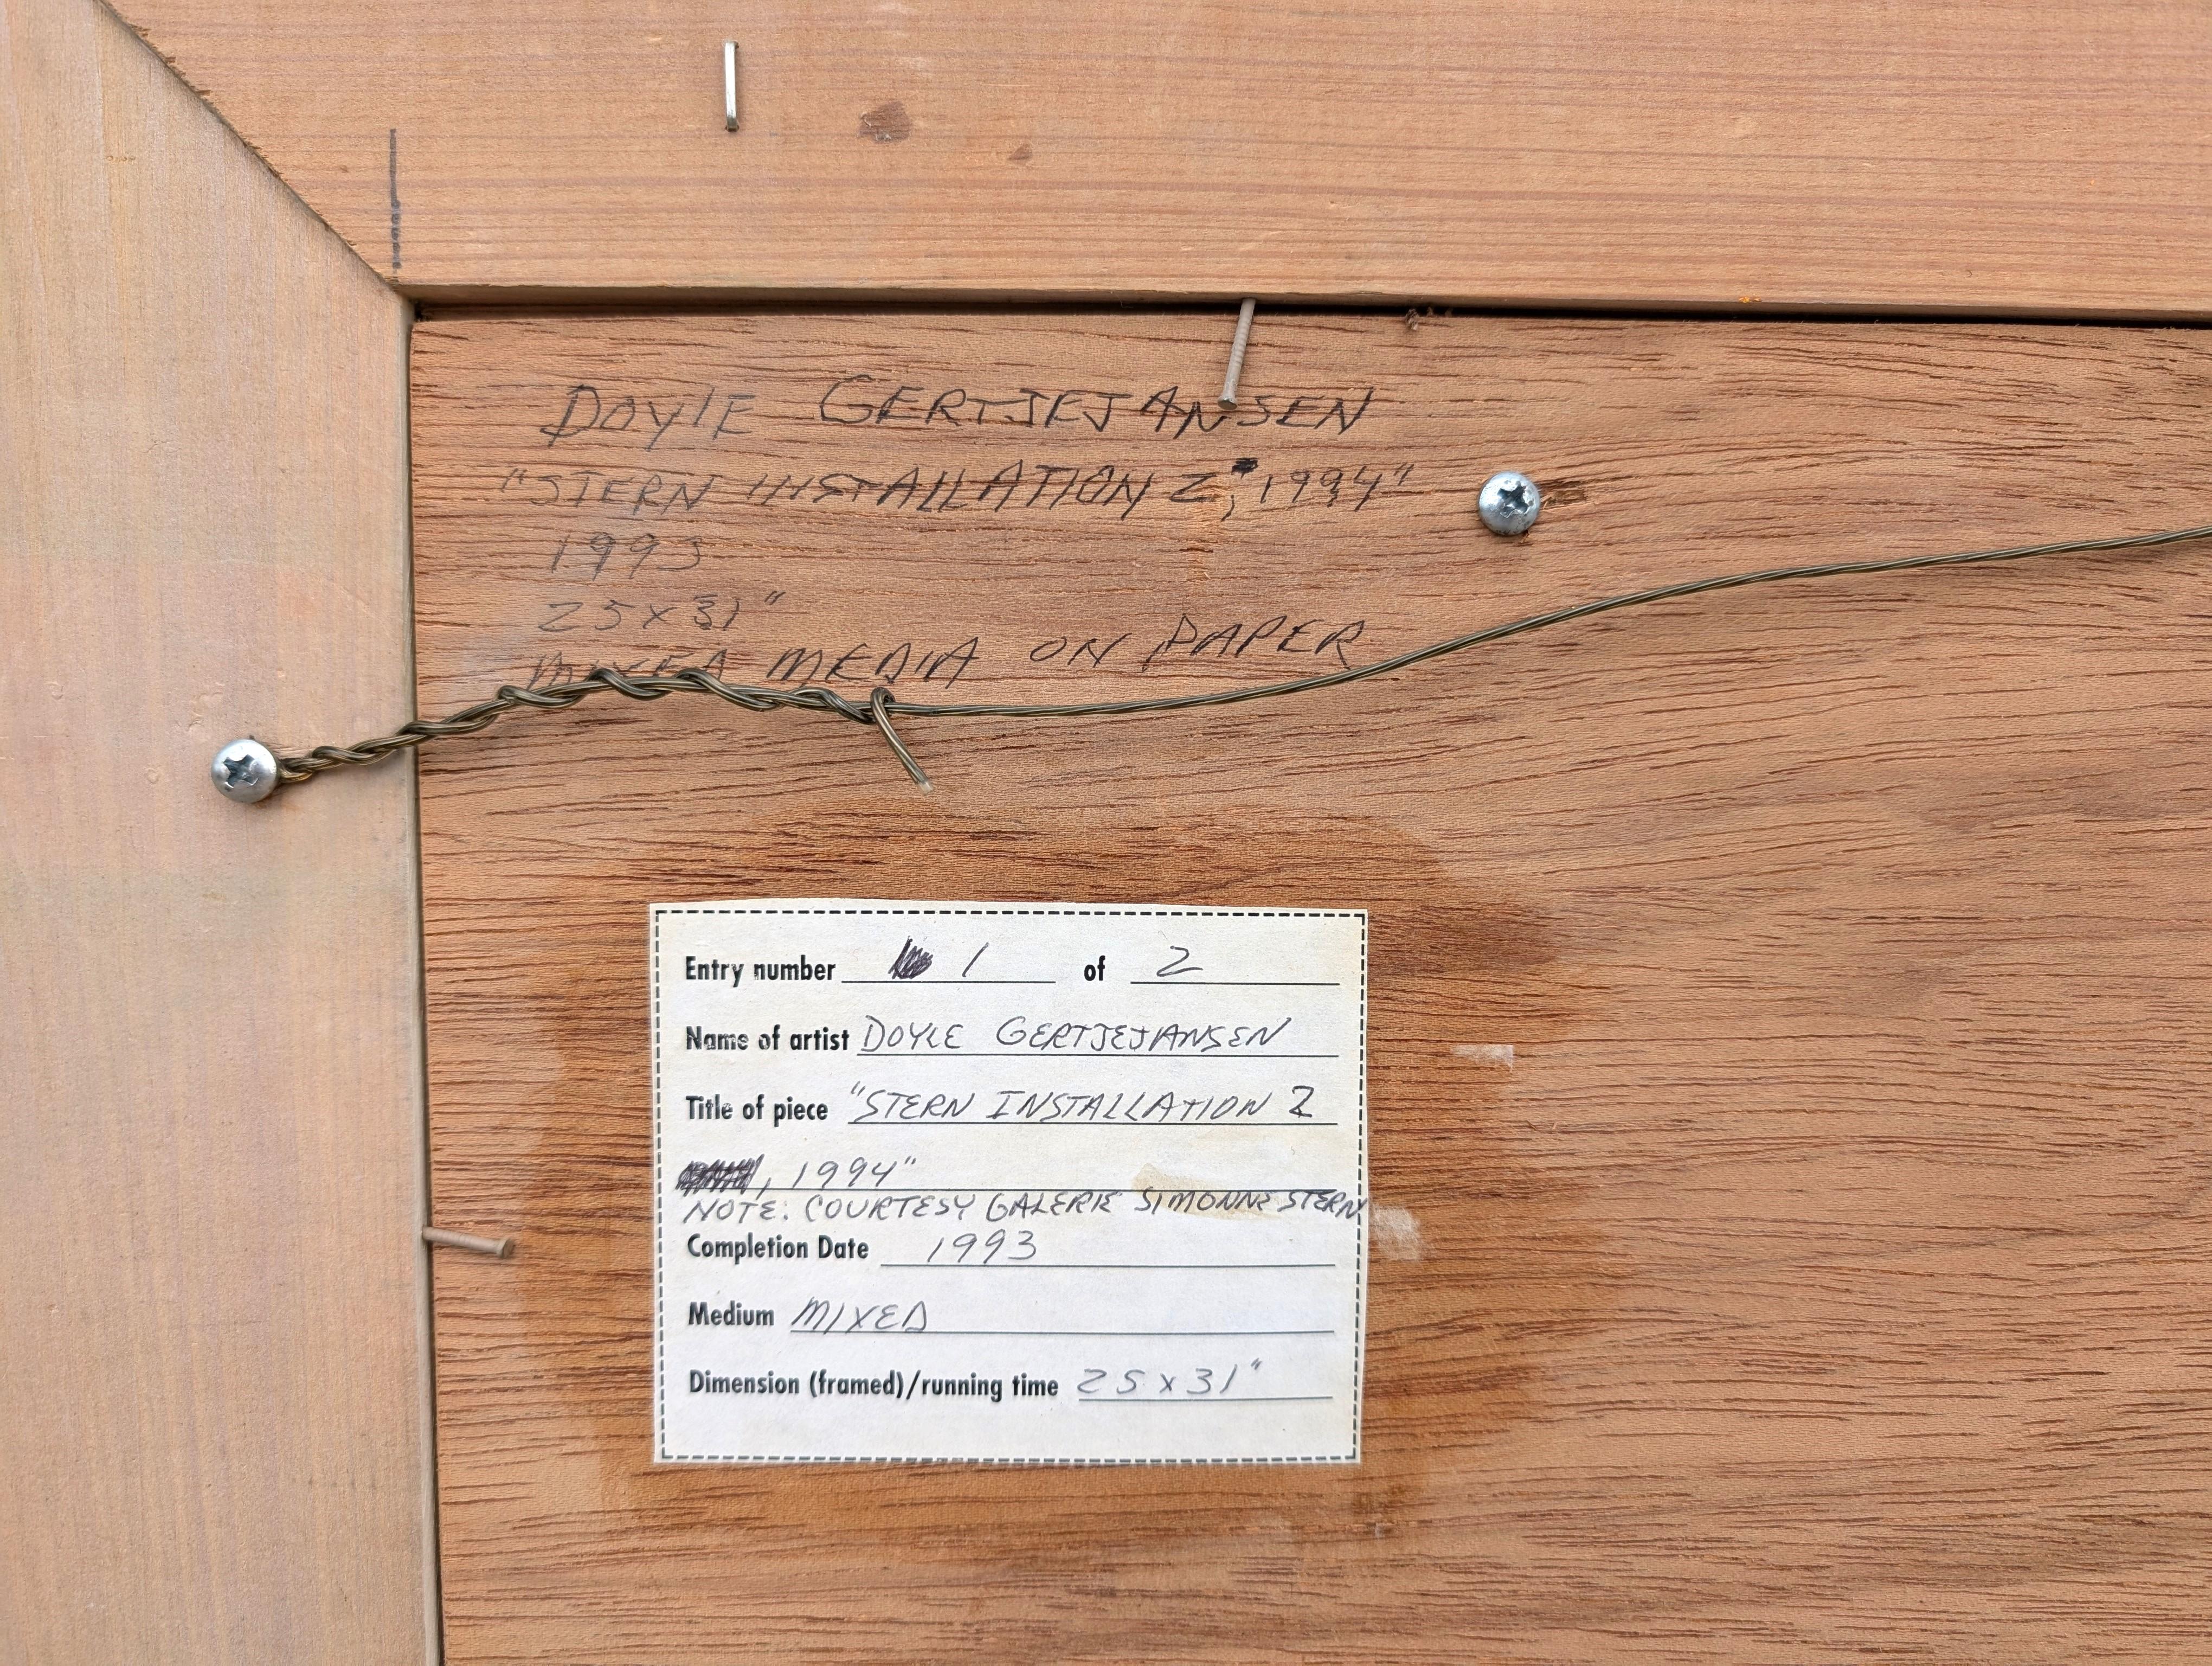 DOYLE GERTJEJANSEN
"STERN INSTALLATION 2", 1994"
1993
25 x 31"
MIXED MEDIA ON PAPER
Entry number 1 of 2
Name of artist DOYLE GERTJEJANSEN
Title of piece "STERN INSTALLATION 2
, 1994"
NOTE: COURTESY GALERIE SIMONNE STERN
Completion Date 1993
Medium MIXED
Dimension (framed)/running time 25 x 31"